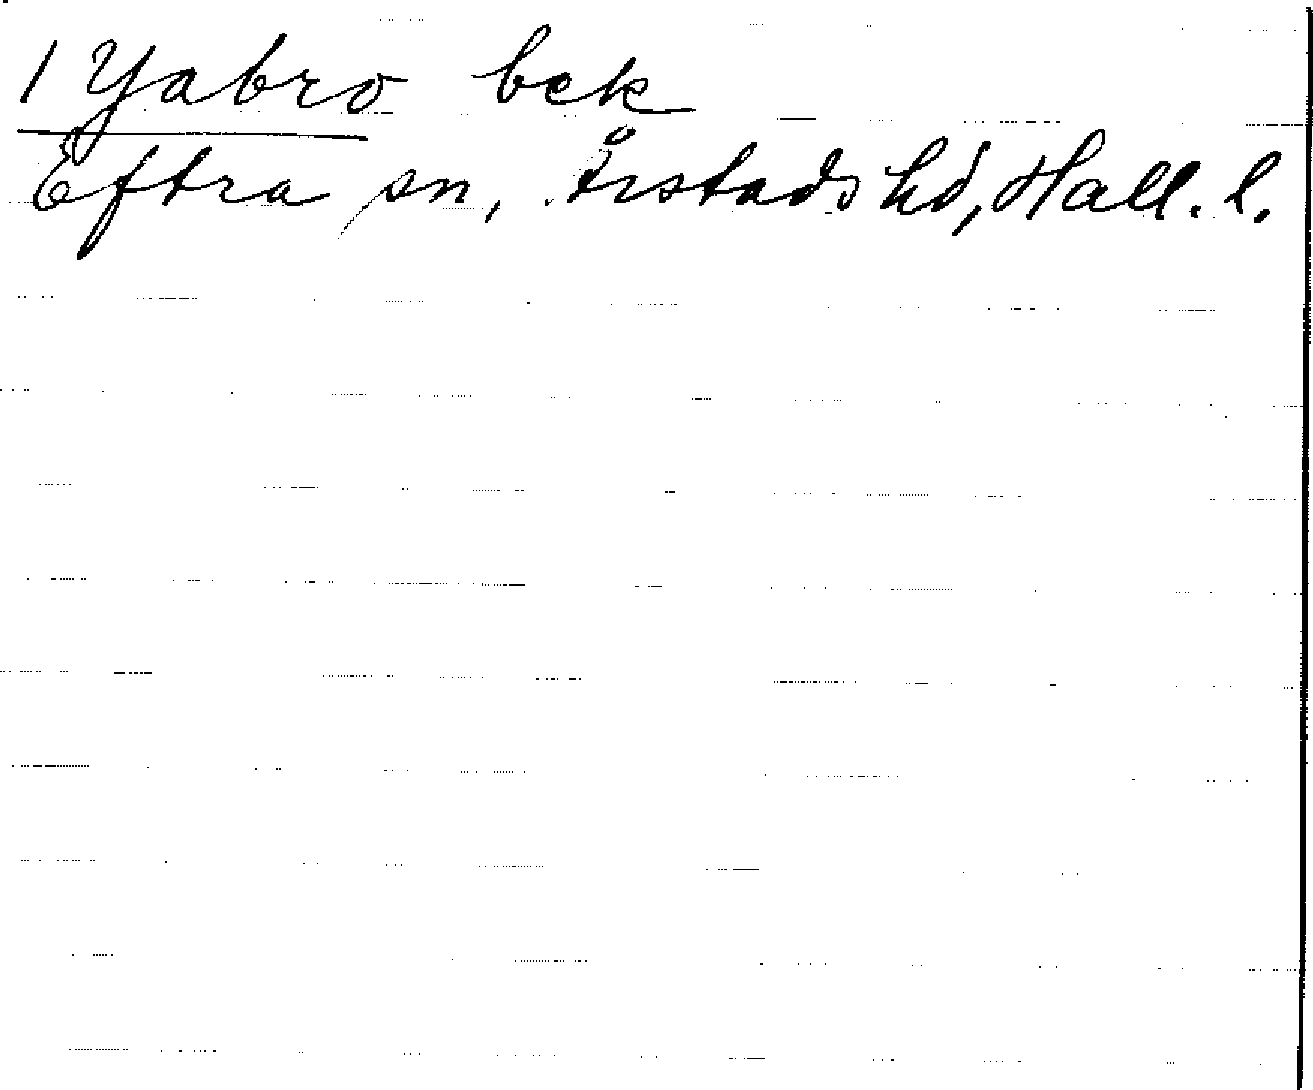 1 Yabro bek
Eftra sn, Årstads hd, Hall. l.